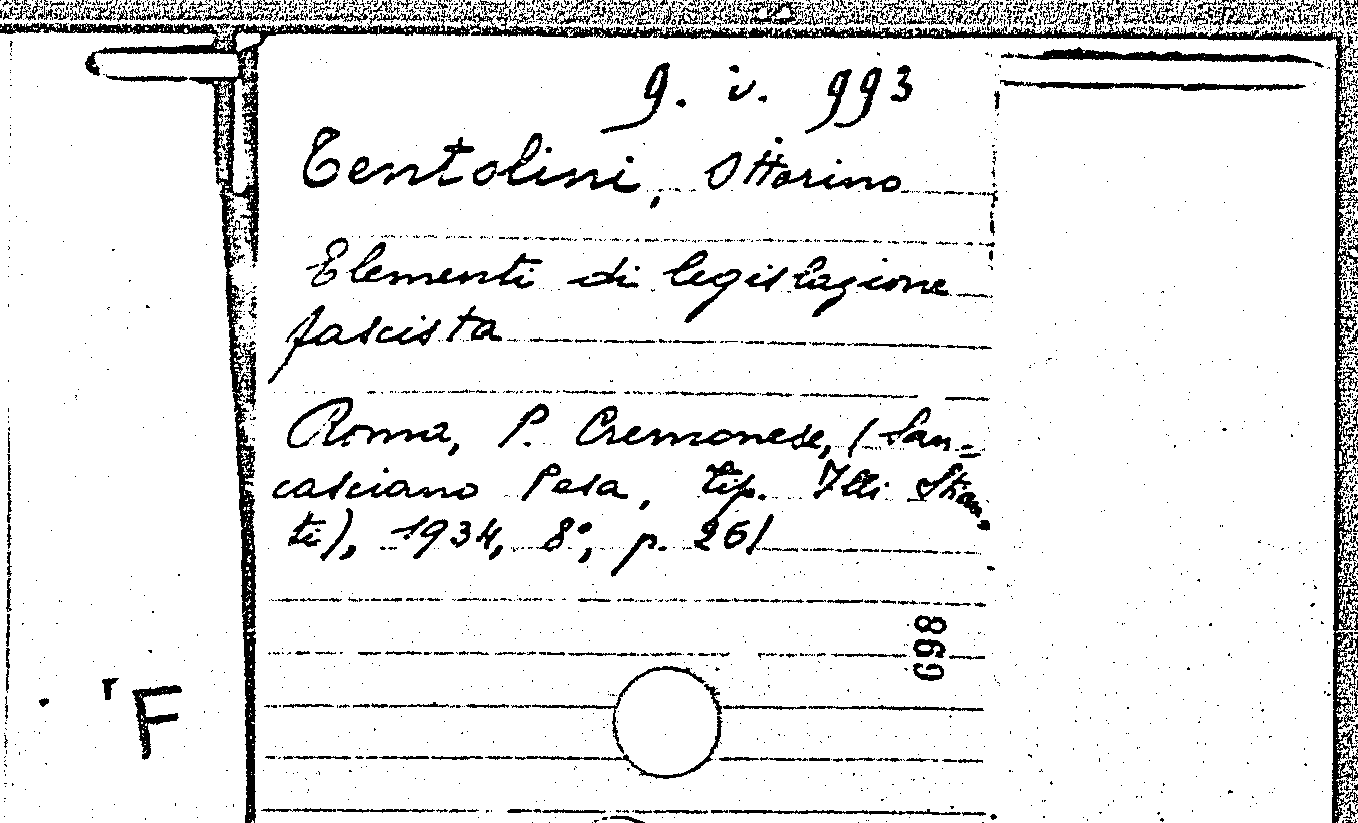 g. v. 993
Tentolini, Ottorino
Elementi di legislazione
fascista
Roma, P. Cremonese, (San-
casciano Pesa, tip. Flli Stian,
ti), 1934, 8°, p. 261
869
F